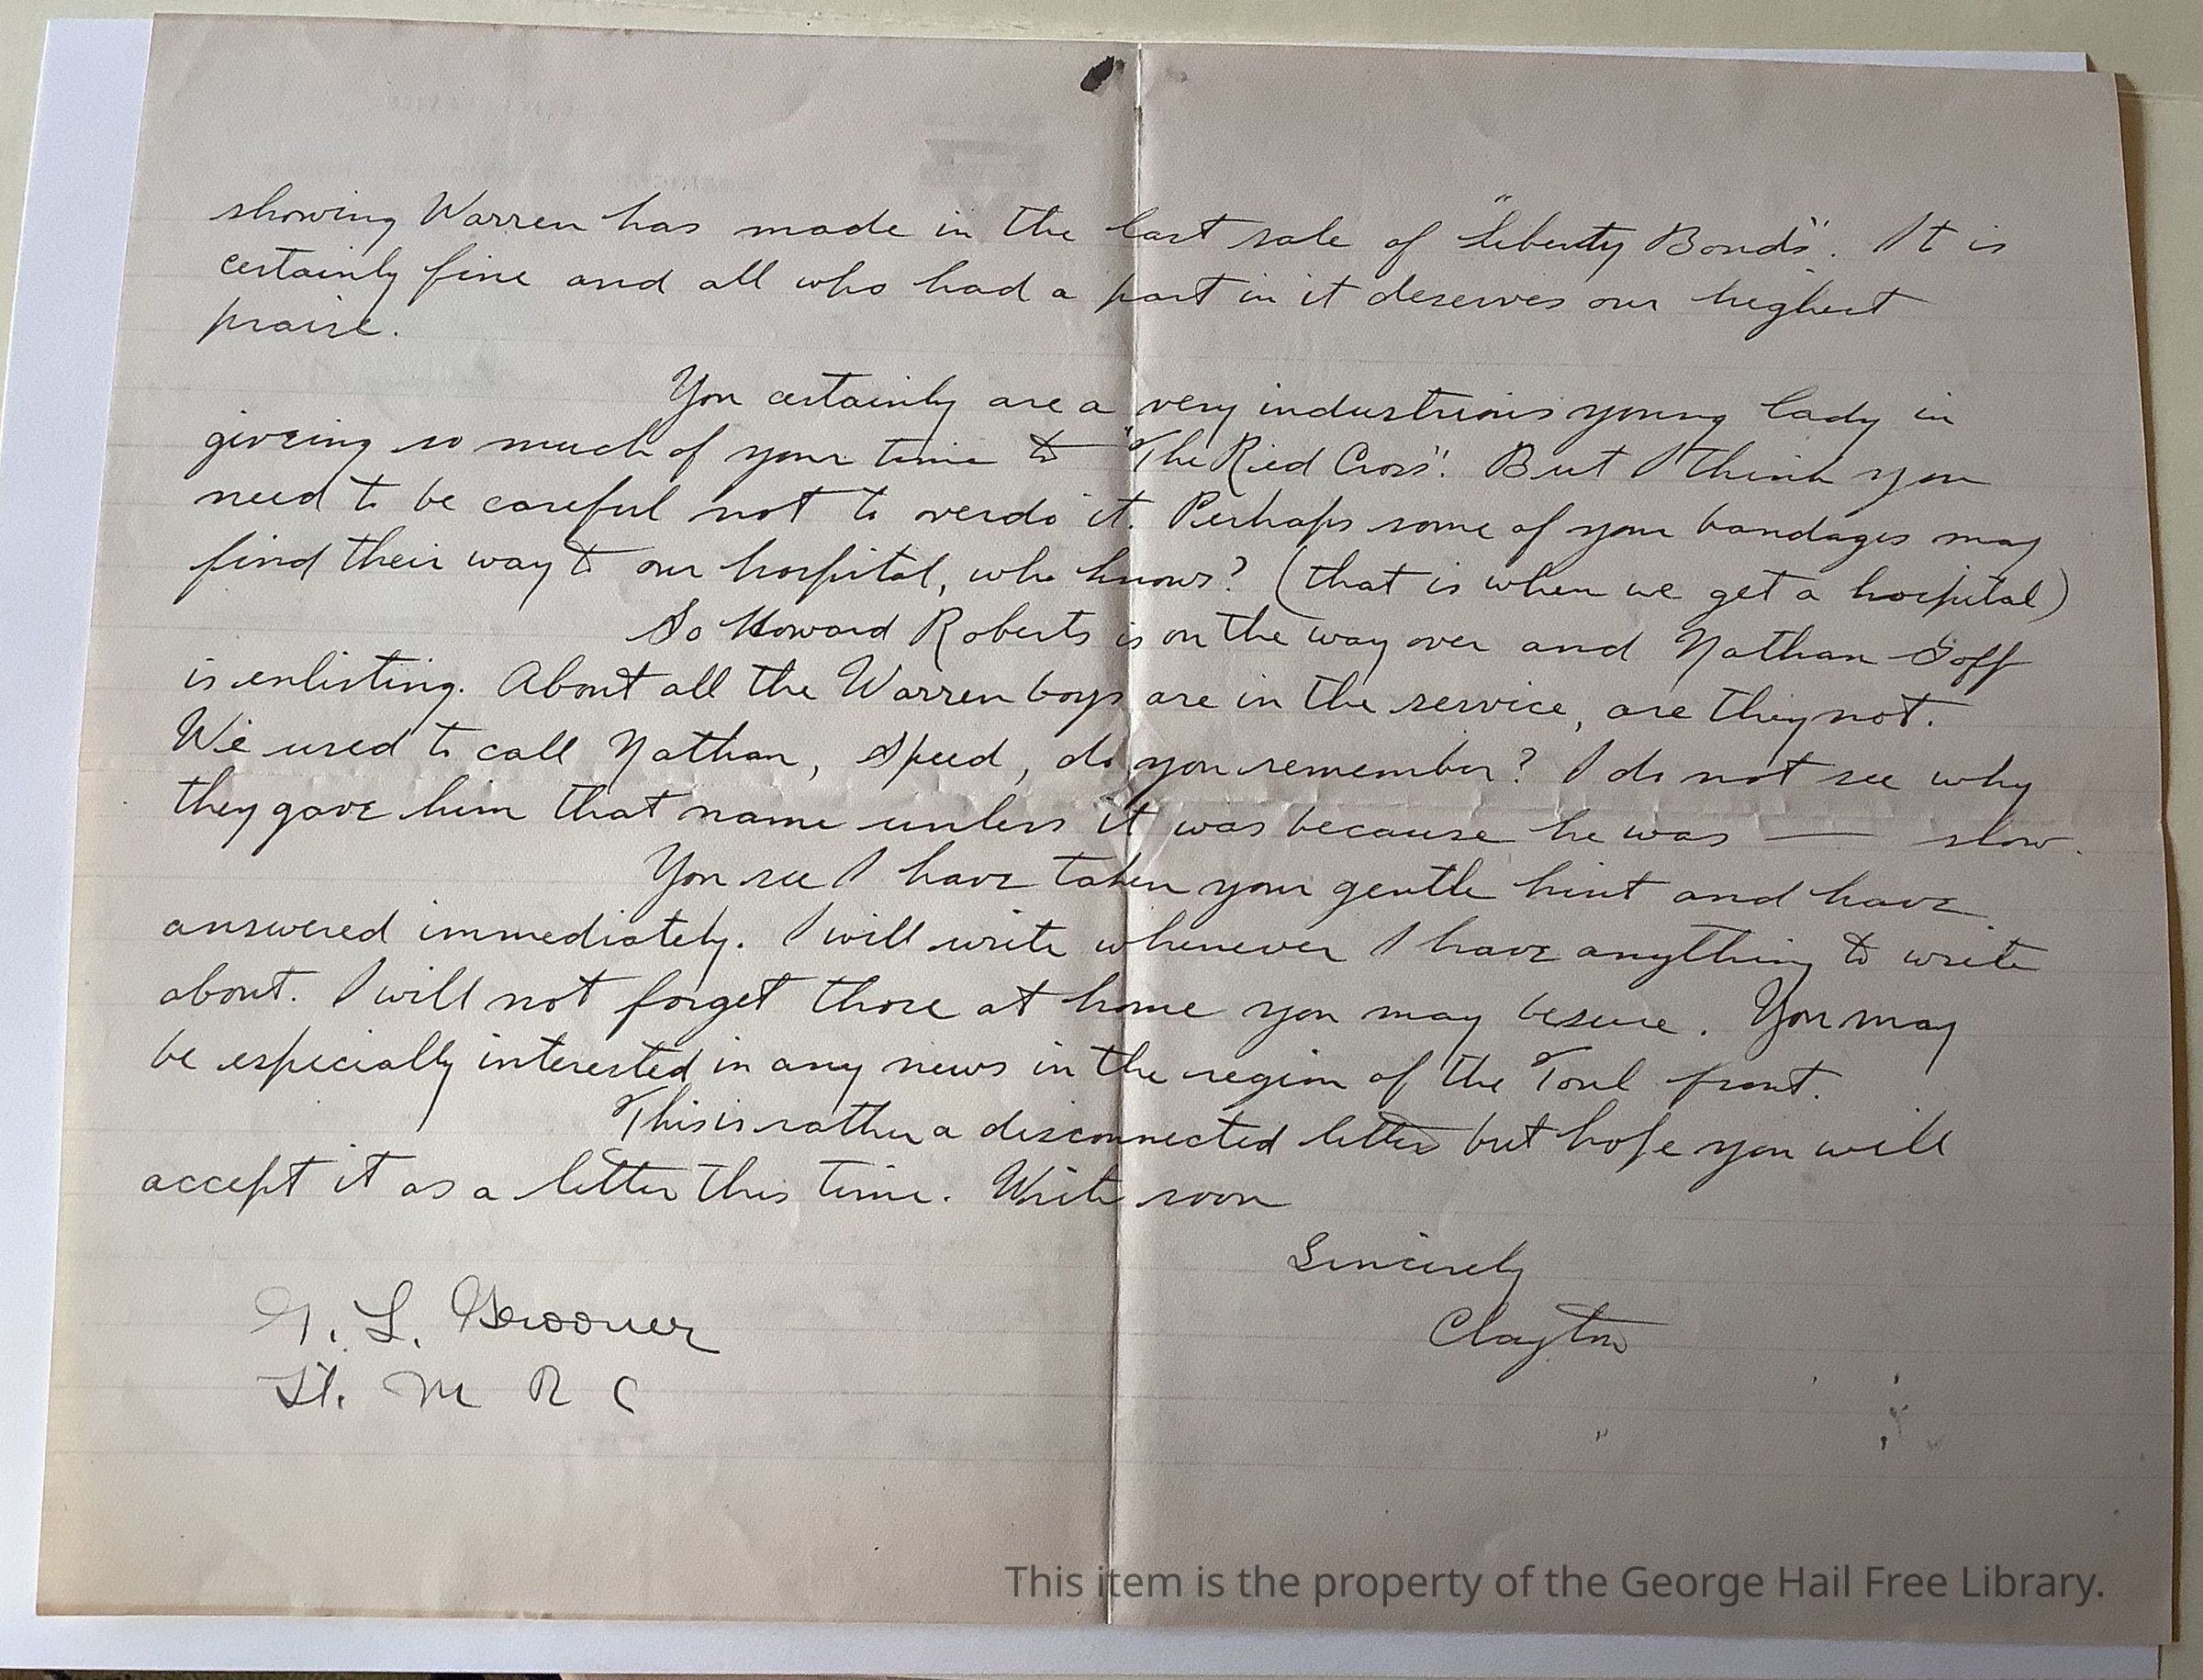 showing Warren has made in the last sale of "Liberty Bonds". It is
certainly fine and all who had a part in it deserves our highest
praise.
You certainly are a very industrious young lady in
giving so much of your time to "The Red Cross". But I think you
need to be careful not to overdo it. Perhaps some of your bandages may
find their way to our hospital, who knows? (that is when we get a hospital)
So Howard Roberts is on the way over and Nathan Goff
is enlisting. About all the Warren boys are in the service, are they not.
We used to call Nathan, Speed, do you remember? I do not see why
they gave him that name unless it was because he was — slow.
You see I have taken your gentle hint and have
answered immediately. I will write whenever I have anything to write
about. I will not forget those at home you may be sure. You may
be especially interested in any news in the region of the Toul front.
This is rather a disconnected letter but hope you will
accept it as a letter this time. Write soon
Sincerely
Clayton
L.
Lt. M R C
This item is the property of the George Hail Free Library.